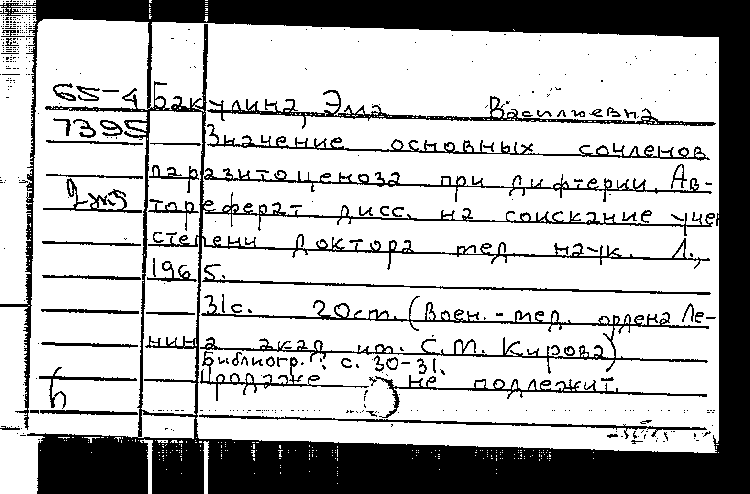 65-4 Бакулина, Элла Васильевна
7395 Значение основных сочленов
паразитоценоза при дифтерии. Ав-
тореферат дисс. на соискание учен
степени доктора мед. наук. Л.,
1965.
31с. 20см. (Воен.-мед. ордена Ле-
нина акад им. С.М. Кирова)
Библиогр.: с. 30-31.
Продаже не подлежит.